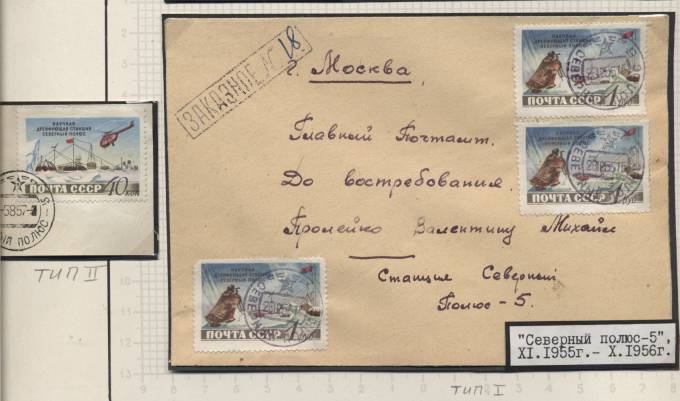 ЗАКАЗНОЕ № 18
г. Москва,
Главный Почтамт.
До востребования.
Пролейко Валентину Михайл
Станция Северный
Полюс-5.
НАУЧНАЯ
ДРЕЙФУЮЩАЯ СТАНЦИЯ
СЕВЕРНЫЙ ПОЛЮС
ПОЧТА СССР 1 РУБ
НАУЧНАЯ
ДРЕЙФУЮЩАЯ СТАНЦИЯ
СЕВЕРНЫЙ ПОЛЮС
ПОЧТА СССР 1
НАУЧНАЯ
ДРЕЙФУЮЩАЯ СТАНЦИЯ
СЕВЕРНЫЙ ПОЛЮС
ПОЧТА СССР 1
НАУЧНАЯ
ДРЕЙФУЮЩАЯ СТАНЦИЯ
СЕВЕРНЫЙ ПОЛЮС
ПОЧТА СССР 40 КОП
ПОЛЮС
ТИП II
"Северный полюс-5",
XI.1955г.- X.1956г.
ТИП I